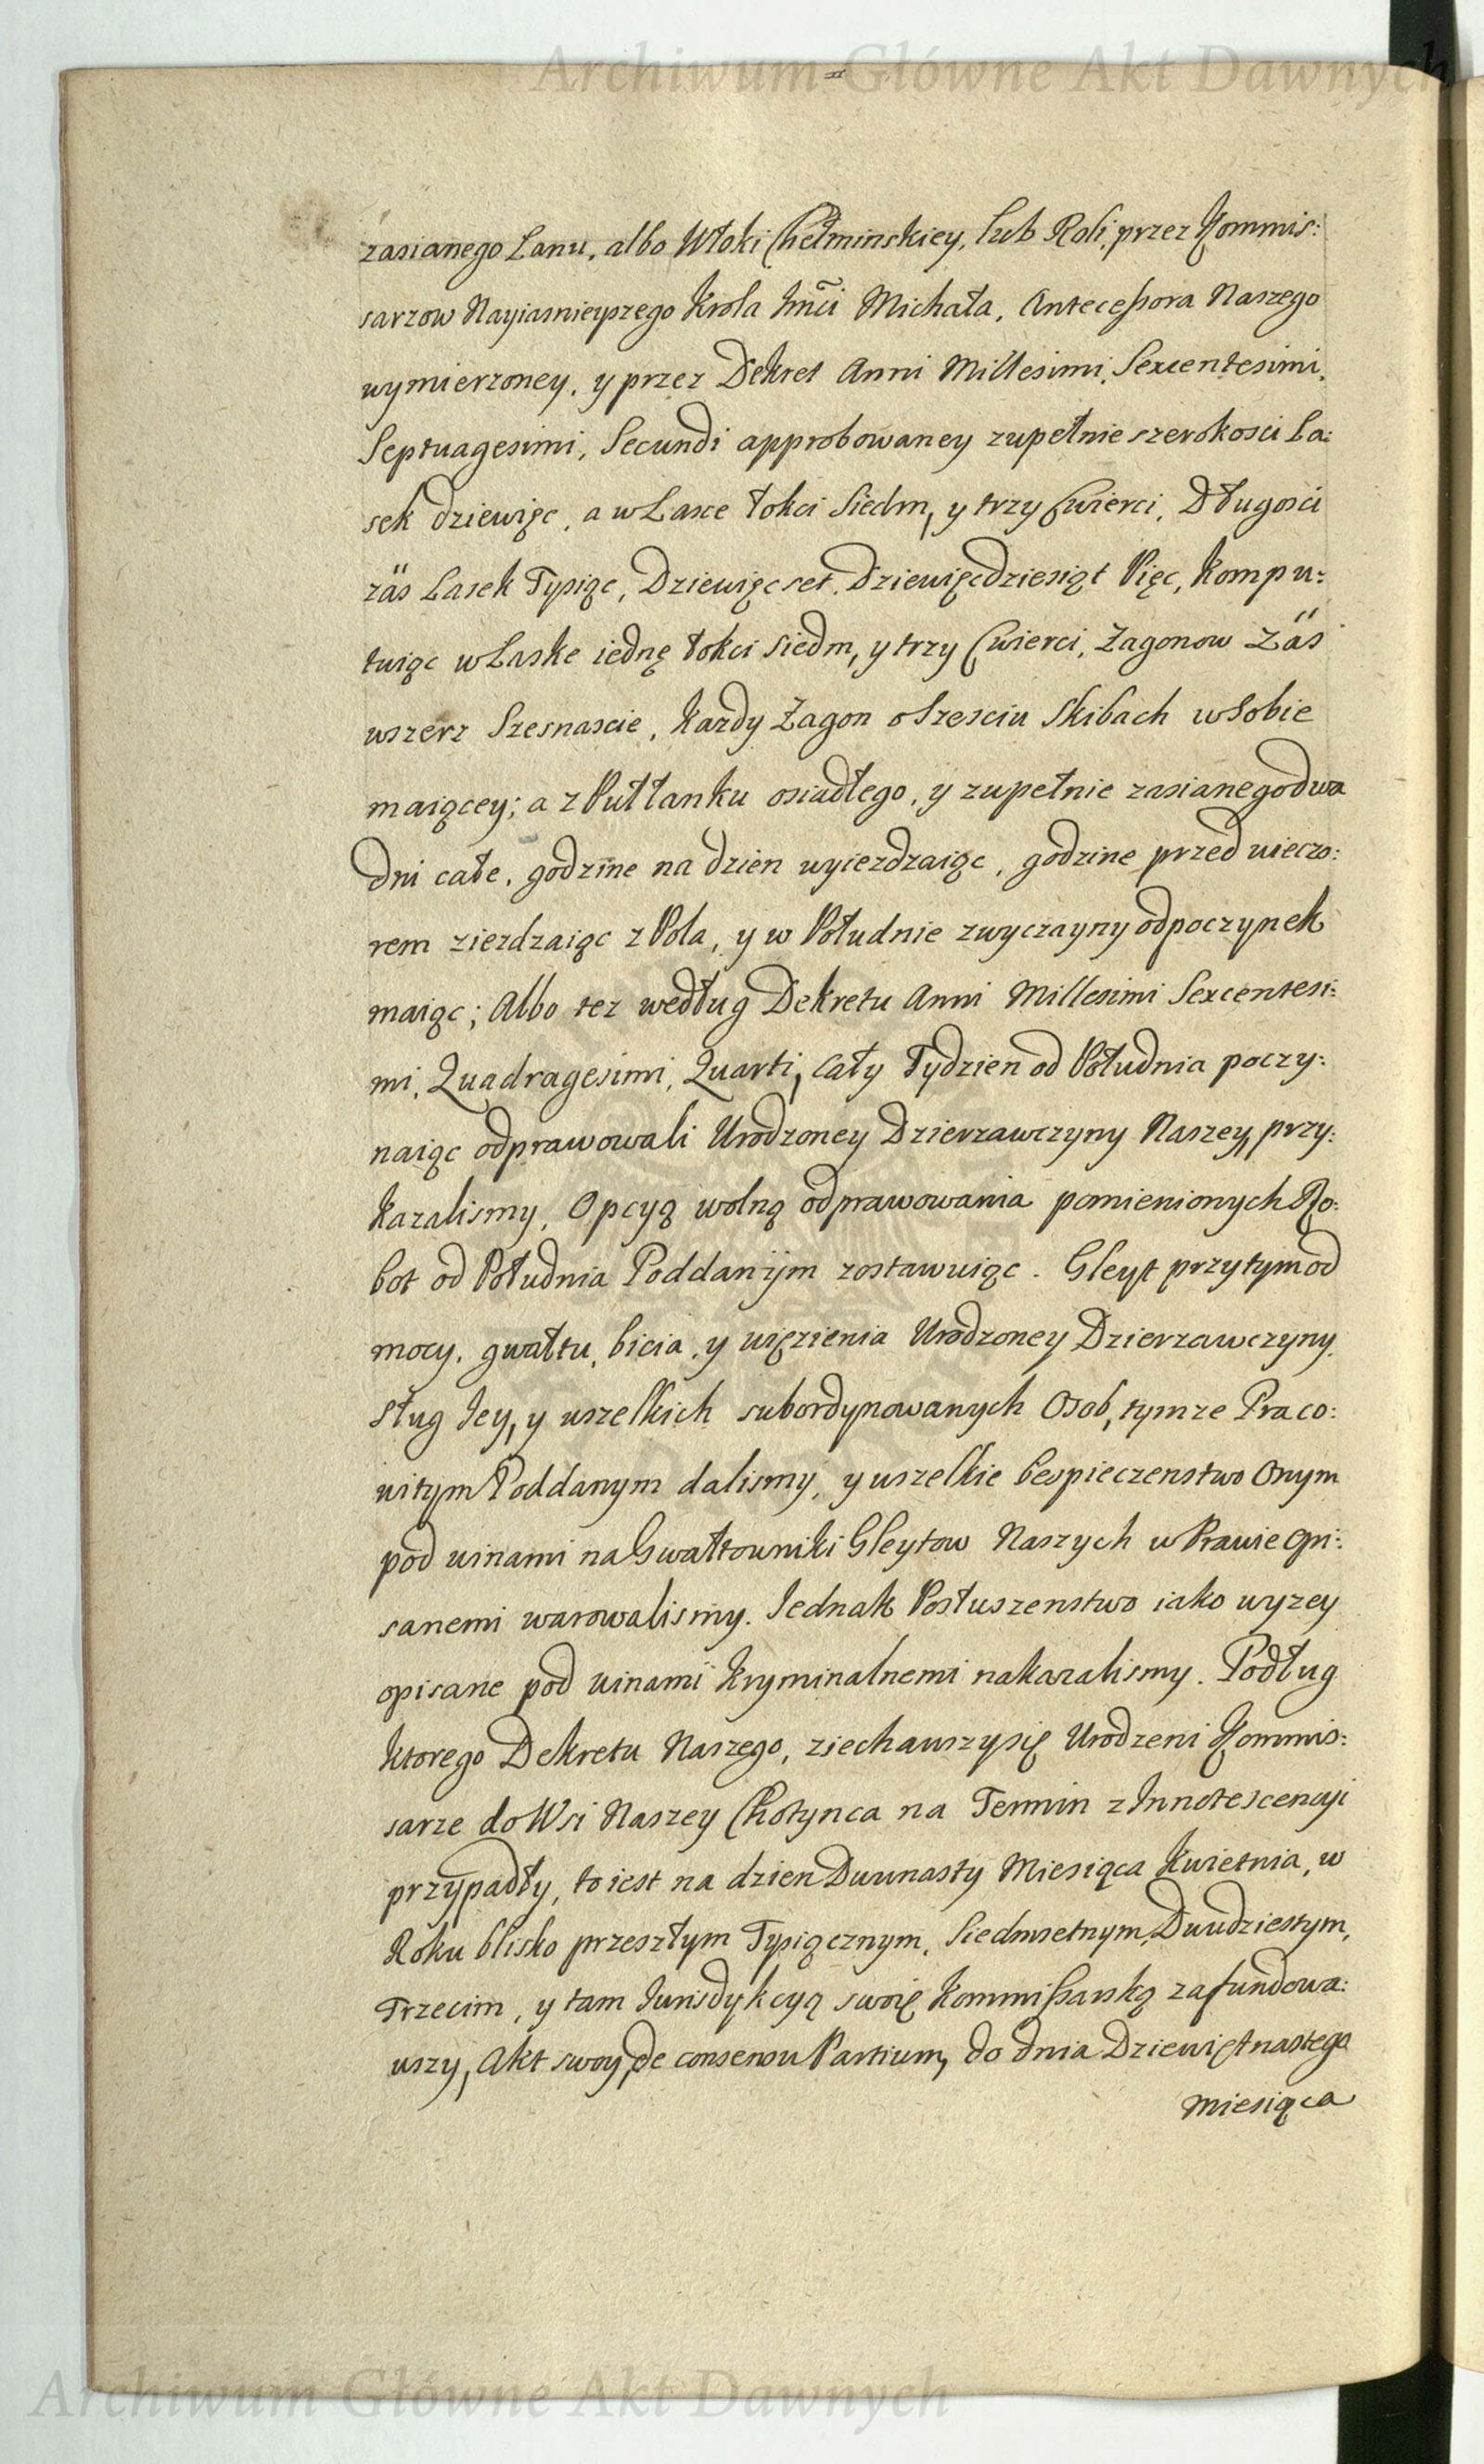 Archiwum Główne Akt Dawnych
zasianego Łanu, albo Włoki Chełminskiey, lub Roli, przez Kommis:
sarzow Nayiasnieyszego Krola Jmći Michała, Antecessora Naszego
wymierzoney, y przez Dekret Anni Millesimi, Sexcentesimi,
Septuagesimi, Secundi approbowaney zupełnie szerokosci La:
sek dziewięc, a w Lasce łokci Siedm, y trzy Cwierci, Długosci
zäs Lasek Tysiąc, Dziewięcset, Dziewięcdziesiąt Pięc, kompu:
tuiąc w Laske iednę łokci siedm, y trzy Cwierci, Zagonow zäs
wszerz Szesnascie, kazdy Zagon o Szesciu Skibach w Sobie
maiącey; a z Puł łanku osiadłego, y zupełnie zasianego dwa
dni całe, godzine na dzien wyiezdzaiąc, godzine przed wieczo:
rem ziezdzaiąc z Pola, y w Południe zwyczayny odpoczynek
maiąc; Albo tez według Dekretu Anni Millesimi Sexcentesi:
mi, Quadragesimi, Quarti, cały Tydzien od Południa poczy:
naiąc odprawowali Urodzoney Dzierzawczyny Naszey, przy:
kazalismy, Opcyą wolną odprawowania pomienionych Ro:
bot od Południa Poddanÿm zostawuiąc. Gleyt przytym od
mocy, gwałtu, bicia, y więzienia Urodzoney Dzierzawczyny,
Sług Jey, y wszelkich subordynowanych Osob, tymze Praco:
witym Poddanym dalismy, y wszelkie bespieczenstwo Onym
pod winami na Gwałtowniki Gleytow Naszych w Prawie opi:
sanemi warowalismy. Jednak Posłuszenstwo iako wyzey
opisane pod winami kryminalnemi nakazalismy. Podług
ktorego Dekretu Naszego, ziechawszysię Urodzeni Kommis:
sarze do Wsi Naszey Chotynca na Termin z Innotescencyi
przypadły, to iest na dzien Dwunasty Miesiąca Kwietnia, w
Roku blisko przeszłym Tysiącznym, Siedmsetnym, Dwudziestym,
Trzecim, y tam Jurisdykcyą swoię Kommissarską zafundowa:
wszy, Akt swoy, de consensu Partium, do dnia Dziewiętnastego
Miesiąca
Archiwum Główne Akt Dawnych